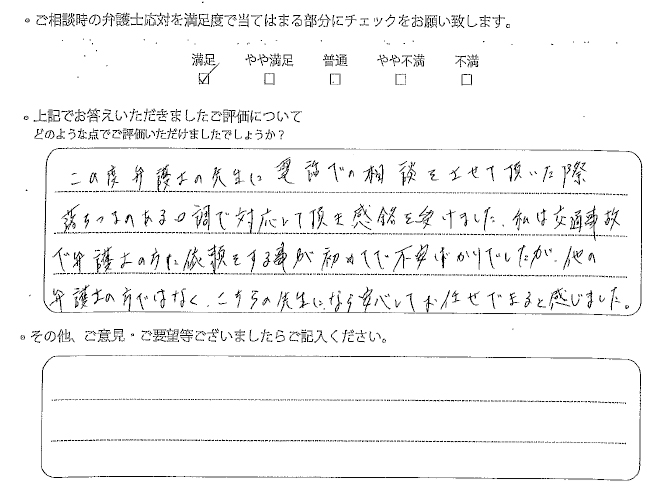 。ご相談時の弁護士応対を満足度で当てはまる部分にチェックをお願い致します。
満足 やや満足 普通 やや不満 不満
☑ ☐ ☐ ☐ ☐
。上記でお答えいただきましたご評価について
どのような点でご評価いただけましたでしょうか?
この度弁護士の先生に電話での相談をさせて頂いた際
落ちつきのある口調で対応して頂き感銘を受けました。私は交通事故
で弁護士の方に依頼をする事が初めてで不安ばかりでしたが、他の
弁護士の方ではなく、こちらの先生になら安心してお任せできると感じました。
。その他、ご意見・ご要望等ございましたらご記入ください。